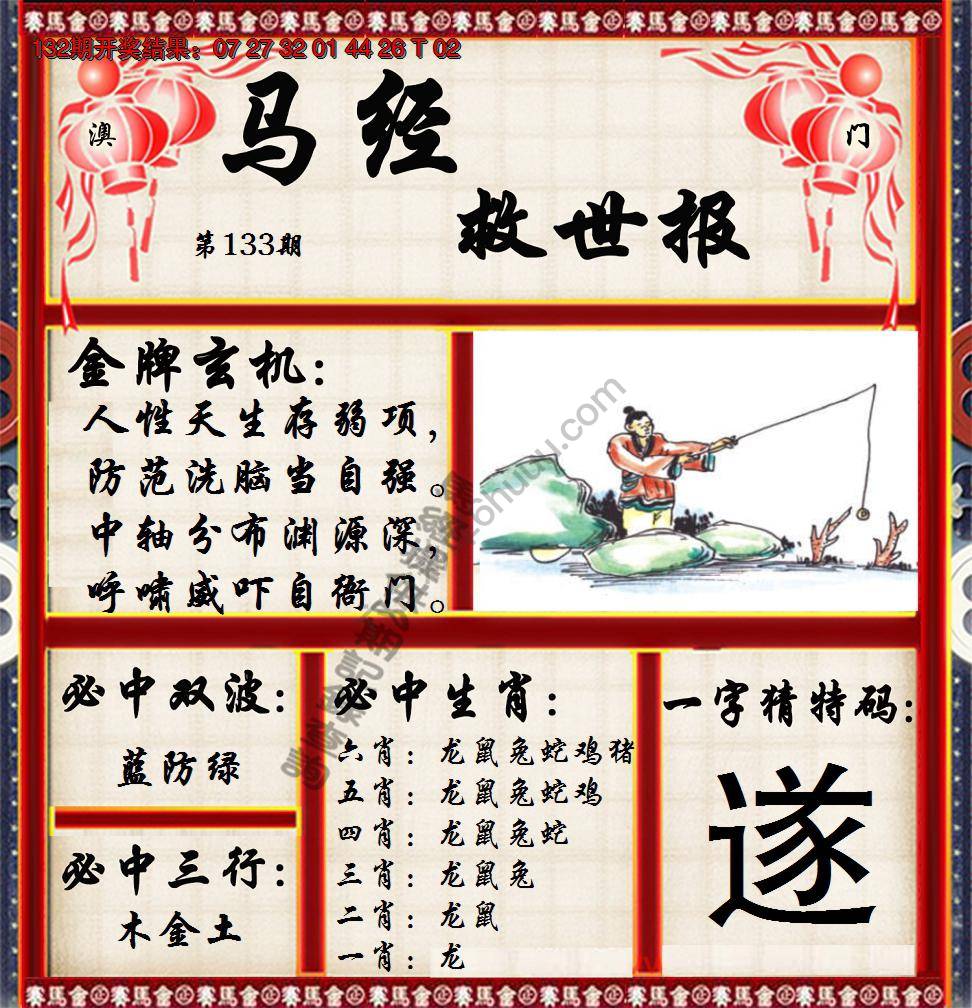 賽馬會 賽馬會 賽馬會 賽馬會 賽馬會 賽馬會 賽馬會 賽馬會 賽馬會
132期开奖结果：07 27 32 01 44 26 T 02
澳
门
马经
救世报
第133期
金牌玄机：
人性天生存弱项，
防范洗脑当自强。
中轴分布渊源深，
呼啸威吓自衙门。
必中双波：
蓝防绿
必中三行：
木金土
必中生肖：
六肖：龙鼠兔蛇鸡猪
五肖：龙鼠兔蛇鸡
四肖：龙鼠兔蛇
三肖：龙鼠兔
二肖：龙鼠
一肖：龙
一字猜特码：
遂